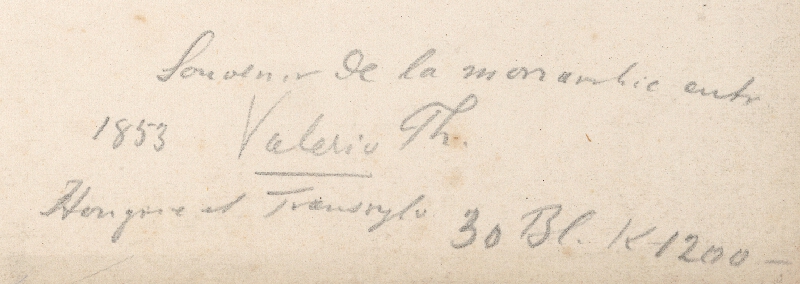 Souvenir de la monarchie autr
1853 Valerio Th.
Hongrie et Transsylv
30 Bl. K 1200 —